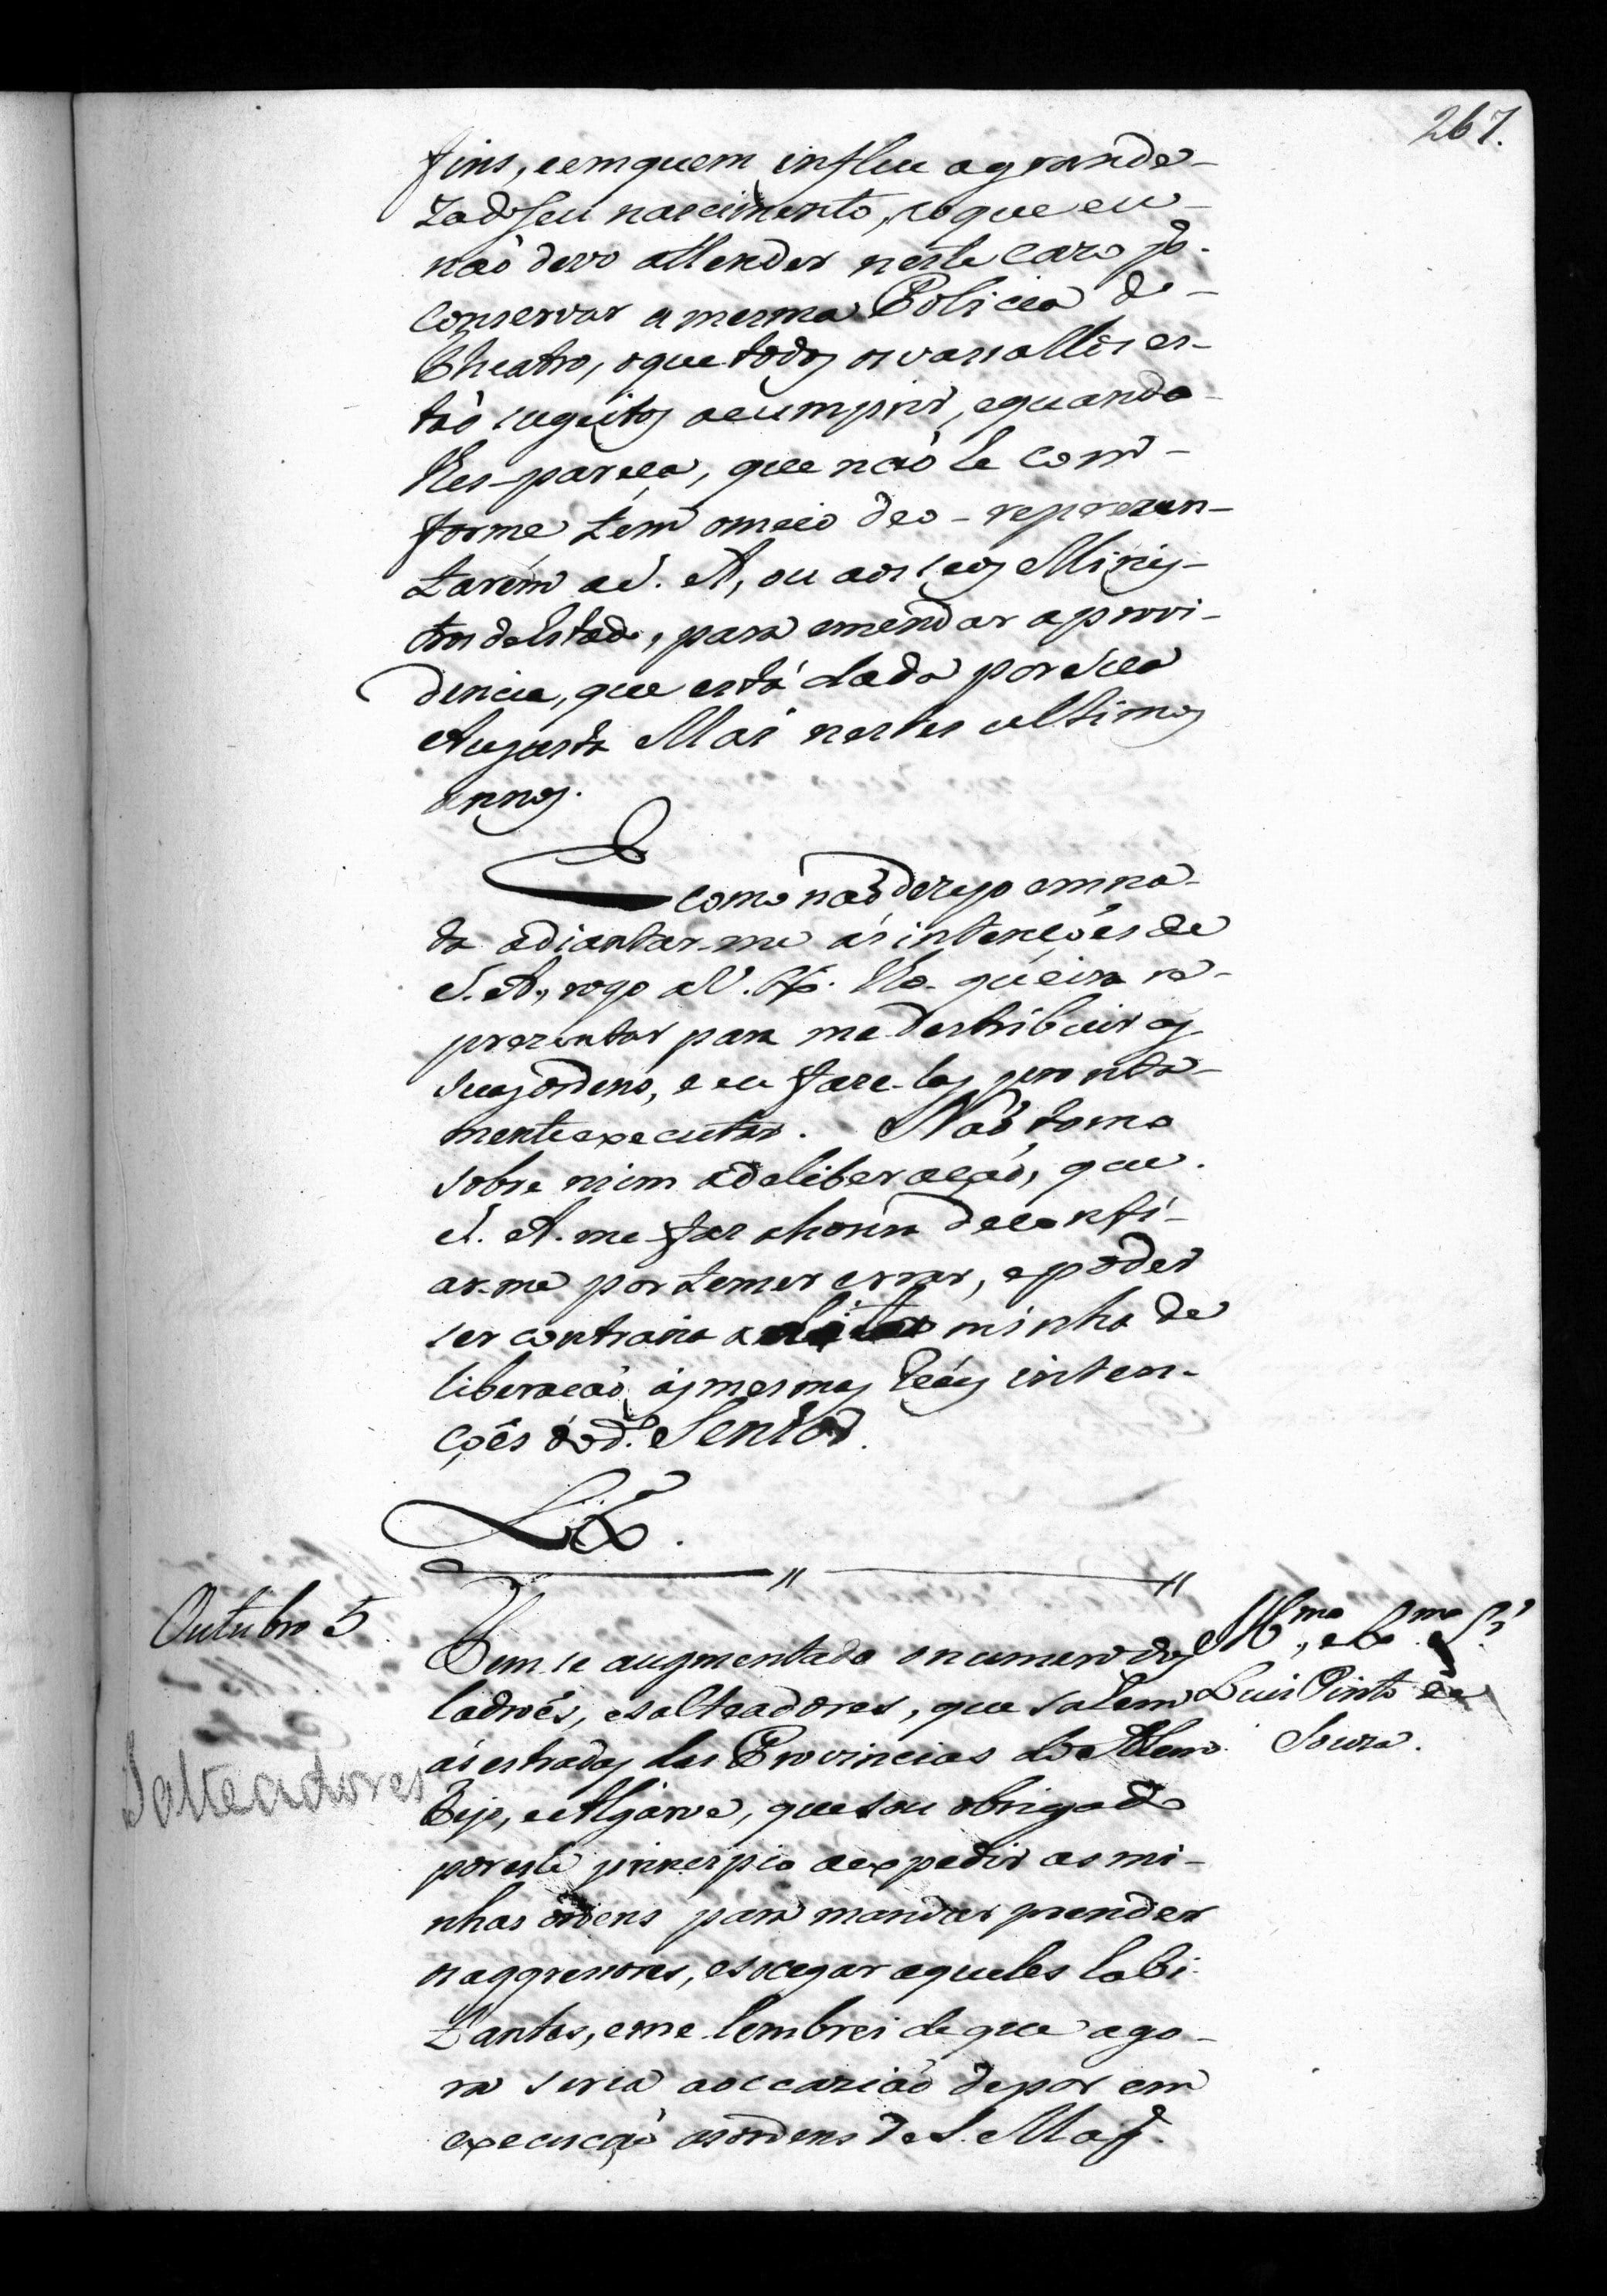 267.
fins, e em quem influe a grande-
za do seu nascimento, e o que eu
naõ devo attender neste cazo p.ª
conservar a mesma Policia do
Theatro, o que todos os vassallos es-
taõ sugeitos a cumprir, e quando
lhes pareça, que naõ he con-
forme tem o meio de o reprezen-
tarem a S. A, ou aos seos Minis-
tros de Estado, para emendar a provi-
dencia, que está dada por sua
Augusta Mai nestes ultimos
annos.
E como naõ dezejo em na-
da adiantar-me ás intençoẽs de
S. A., rogo a V. Ex. lho queira re-
prezentar para me destribuir as
suas ordens, e eu faze-las pronta-
mente executar. Naõ tomo
sobre mim a deliberaçaõ, que
S. A. me faz a honra de confi-
ar-me por temer errar, e poder
ser contraria a minha de
liberaçaõ ás mesmas Reáes inten-
çoẽs do d.º Senhor.
Lix.ª
Outubro 5
Tem se augmentado o numero dos
Ill.mo, e Ex.mo S.r
ladroẽs, e salteadores, que salem
Luis Pinto de
ás estradas das Provincias do Alem
Souza.
Salteadores
Tejo, e Algarve, que sou obrigado
por este principio a expedir as mi-
nhas ordens para mandar prender
os aggressores, e socegar aqueles habi
tantes, e me lembrei de que ago-
ra seria a occaziaõ de por em
execuçaõ as ordens de S. Mag.e